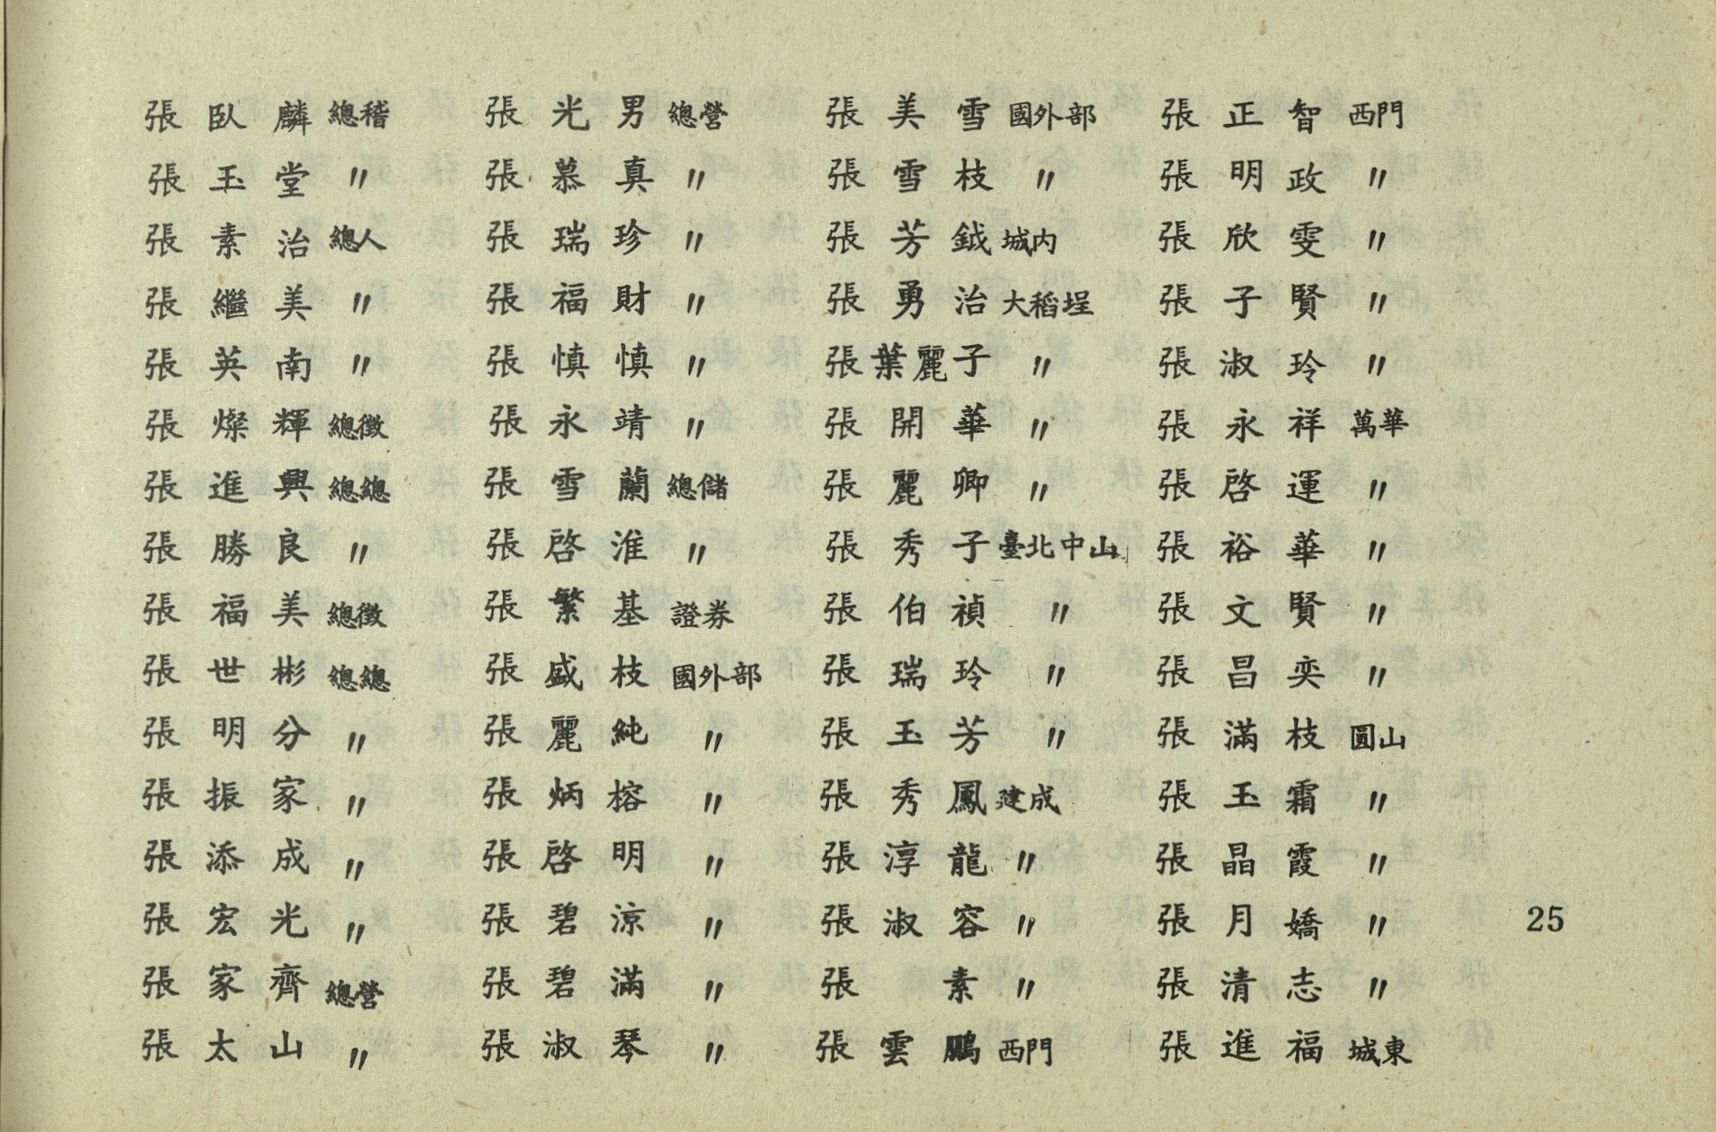 張臥麟 總稽
張玉堂 〃
張素治 總人
張繼美 〃
張英南 〃
張燦輝 總徵
張進興 總總
張勝良 〃
張福美 總徵
張世彬 總總
張明分 〃
張振家 〃
張添成 〃
張宏光 〃
張家齊 總營
張太山 〃
張光男 總營
張慕真 〃
張瑞珍 〃
張福財 〃
張慎慎 〃
張永靖 〃
張雪蘭 總儲
張啓淮 〃
張繁基 證券
張盛枝 國外部
張麗純 〃
張炳榕 〃
張啓明 〃
張碧涼 〃
張碧滿 〃
張淑琴 〃
張美雪 國外部
張雪枝 〃
張芳鉞 城內
張勇治 大稻埕
張葉麗子 〃
張開華 〃
張麗卿 〃
張秀子 臺北中山
張伯禎 〃
張瑞玲 〃
張玉芳 〃
張秀鳳 建成
張淳龍 〃
張淑容 〃
張素 〃
張雲鵬 西門
張正智 西門
張明政 〃
張欣雯 〃
張子賢 〃
張淑玲 〃
張永祥 萬華
張啓運 〃
張裕華 〃
張文賢 〃
張昌奕 〃
張滿枝 圓山
張玉霜 〃
張晶霞 〃
張月嬌 〃
張清志 〃
張進福 城東
25